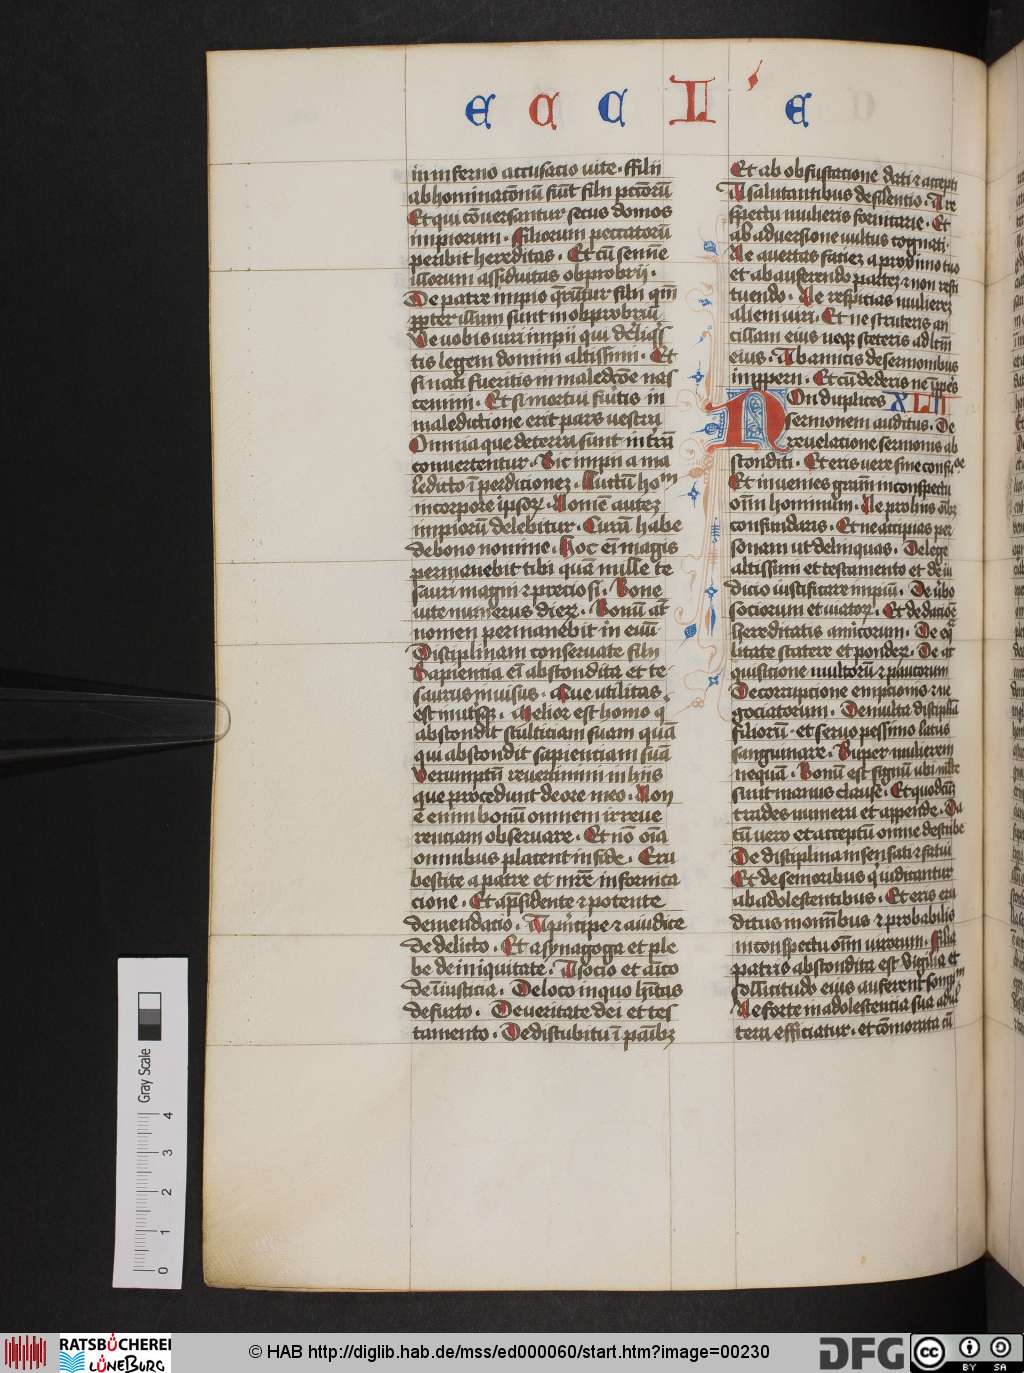 E C C L' E
in inferno accusacio vite · ffilii
abhominac̄onū fiūt filii pcc̄orū
Et qui cōversantur secus domos
impiorum · ffiliorum peccatorū
peribit hereditas · Et cū semīe
illorum assiduitas obprobrii ·
De patre impio q̄rūtur filii qm̄
ꝓpter illum sunt in obprobriū
Ve vobis viri impii qui dereliq̄s
tis legem domini altissimi · Et
si nati fueritis in maledc̄oe nas
cemini · Et si mortui fu'itis in
maledictione erit pars vestra
Omnia que de terra sunt in trā
convertentur · Sic impii a ma
ledicto ī perdicionez · Luctū hoīm
in corpore ip̄soꝝ · Nomē autez
impiorū delebitur · Curam habe
de bono nomine · Hoc eī magis
permanebit tibi quā mille te
sauri magni et preciosi · Bone
vite numerus dierꝝ · Bonū aūt
nomen permanebit in evū ·
Disciplinam conservate filii
Sapiencia eī abscondita et te
saurus invisus · Que utilitas
est in utrisqꝫ · Melior est homo q̄
abscondit stulticiam suam quā
qui abscondit sapienciam suā
Verumptn̄ reverimini in hiis
que procedunt de ore meo · Non
ē enim bonū omnem irreve
renciam observare · Et nō oīa
omnibus placent in fide · Eru
bescite a patre et mr̄e in fornica
cione · Et a p̄sidente ⁊ potente
de mendacio · A p'ncipe ⁊ a iudice
de delicto · Et a synagoga et ple
be de iniquitate · A socio et aīco
de īiusticia · De loco in quo h̄itas
de furto · De veritate dei et tes
tamento · De discubitu ī panibꝫ
Et ab obfuscatione dati ⁊ accepti
A salutantibus de silentio · A re
spectu mulieris fornicarie · Et
ab adversione vultus cognati ·
Ne avertas faciez a proximo tuo
et ab auferendo partez ⁊ non resti
tuendo · Ne respicias mulierez
alieni viri · Et ne scruteris an
cillam eius neqꝫ steteris ad lc̄m
eius · Ab amicis de sermonibus
improperii · Et cū dederis ne īproperes
Non duplices XLII
sermonem auditus · De
revelacione sermonis ab
sconditi · Et eris vere sine confusiōe
Et invenies gr̄am in conspectu
oīm hominum · Ne pro hiis oībꝫ
confundaris · Et ne accipias per
sonam ut delinquas · De lege
altissimi et testamento et de iu
dicio iustificare impiū · De v'bo
sociorum et viatorꝝ · Et de dacioē
hereditatis amicorum · De eq̄
litate statere et ponderꝝ · De ac
quisicione multorū ⁊ paucorum
De corrupcione empcionis ⁊ ne
gociatorum · De multa disciplīa
filiorū · et servo pessimo latus
sanguinare · Super mulierem
nequā · Bonū est signū · Ubi multe
sunt manus claude · Et quodcūqꝫ
trades numera et appende · Da
tū vero et acceptū omne describe
De disciplina insensati ⁊ fatui
Et de senioribus q̄ iudicantur
ab adolescentibus · Et eris eru
ditus in omnibus ⁊ probabilis
in conspectu oīm virorum · Filia
patris abscondita est vigilia et
sollicitudo eius auferent sompm̄
Ne forte in adolescentia sua adul
tera efficiatur · et cōmorata cū
Gray Scale
0 1 2 3 4
RATSBÜCHEREI
LÜNEBURG
© HAB http://diglib.hab.de/mss/ed000060/start.htm?image=00230
DFG
cc BY SA